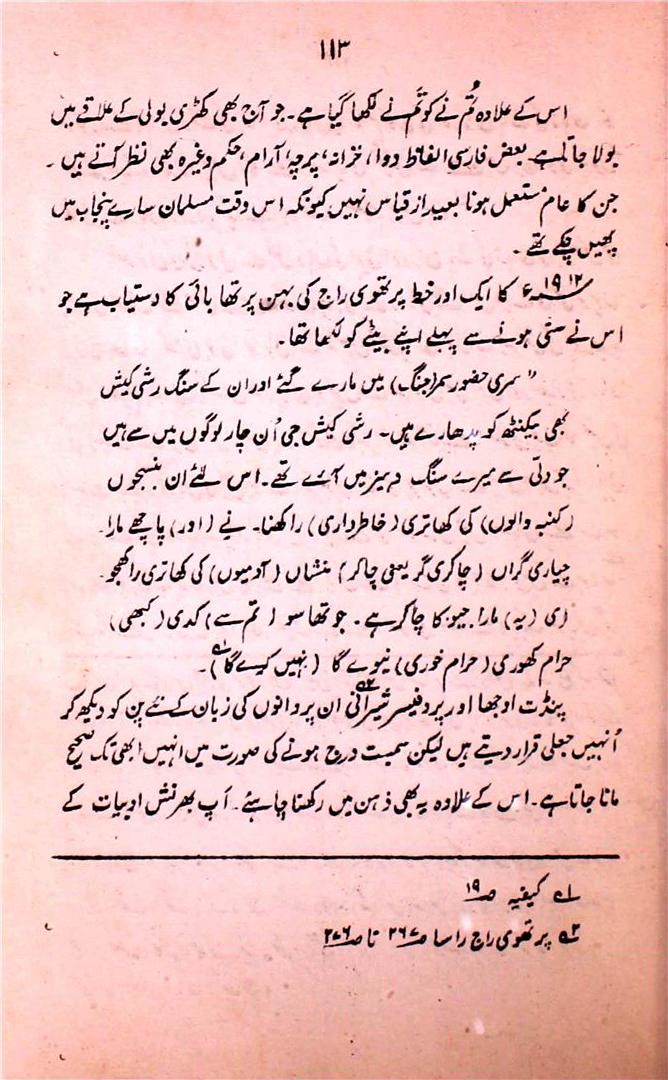 ۱۱۳
اس کے علاوہ تُم نے کو تمّ نے لکھا گیا ہے۔ جو آج بھی کھڑی بولی کے علاقے میں
بولا جاتا ہے۔ بعض فارسی الفاظ دوا، خزانہ، پرچہ، آرام، حکم وغیرہ بھی نظر آتے ہیں۔
جن کا عام مستعمل ہونا بعید از قیاس نہیں کیونکہ اس وقت مسلمان سارے پنجاب میں
پھیل چکے تھے۔
۱۹۱۲ء کا ایک اور خط پرتھوی راج کی بہن پرتھا بائی کا دستیاب ہے جو
اس نے ستی ہونے سے پہلے اپنے بیٹے کو لکھا تھا۔
" سمری حضور سمر (جنگ) میں مارے گئے اور ان کے سنگ رشی کیش
بھی بیکنٹھ کو پدھارے ہیں۔ رشی کیش جی اُن چار لوگوں میں سے ہیں
جو دتی سے میرے سنگ دہیز میں آئے تھے۔ اس لئے ان بنسجوں
(کنبہ والوں) کی کھاتری (خاطرداری) راکھنا۔ نے (اور) پاچھے مارا۔
چیاری گراں (چاکری گر یعنی چاکر) منشاں (آدمیوں) کی کھاتری راکھجو۔
ای (یہ) مارا جیو کا چاکر ہے۔ جو تھا سو (تم سے) کدی (کبھی)
حرام کھوری (حرام خوری) نیوے گا (نہیں کرے گا)۱؎۔
پنڈت اوجھا اور پروفیسر شیرانی۲؎ ان پروانوں کی زبان کے نئے پن کو دیکھ کر
اُنہیں جعلی قرار دیتے ہیں لیکن سمیت درج ہونے کی صورت میں انہیں ابھی تک صحیح
مانا جاتا ہے۔ اس کے علاوہ یہ بھی ذہن میں رکھنا چاہئے۔ اَپ بھرنش ادبیات کے
۱؎ کیفیہ ص۱۹
۲؎ پرتھوی راج راسا ص۲۶۷ تا ص۲۷۶